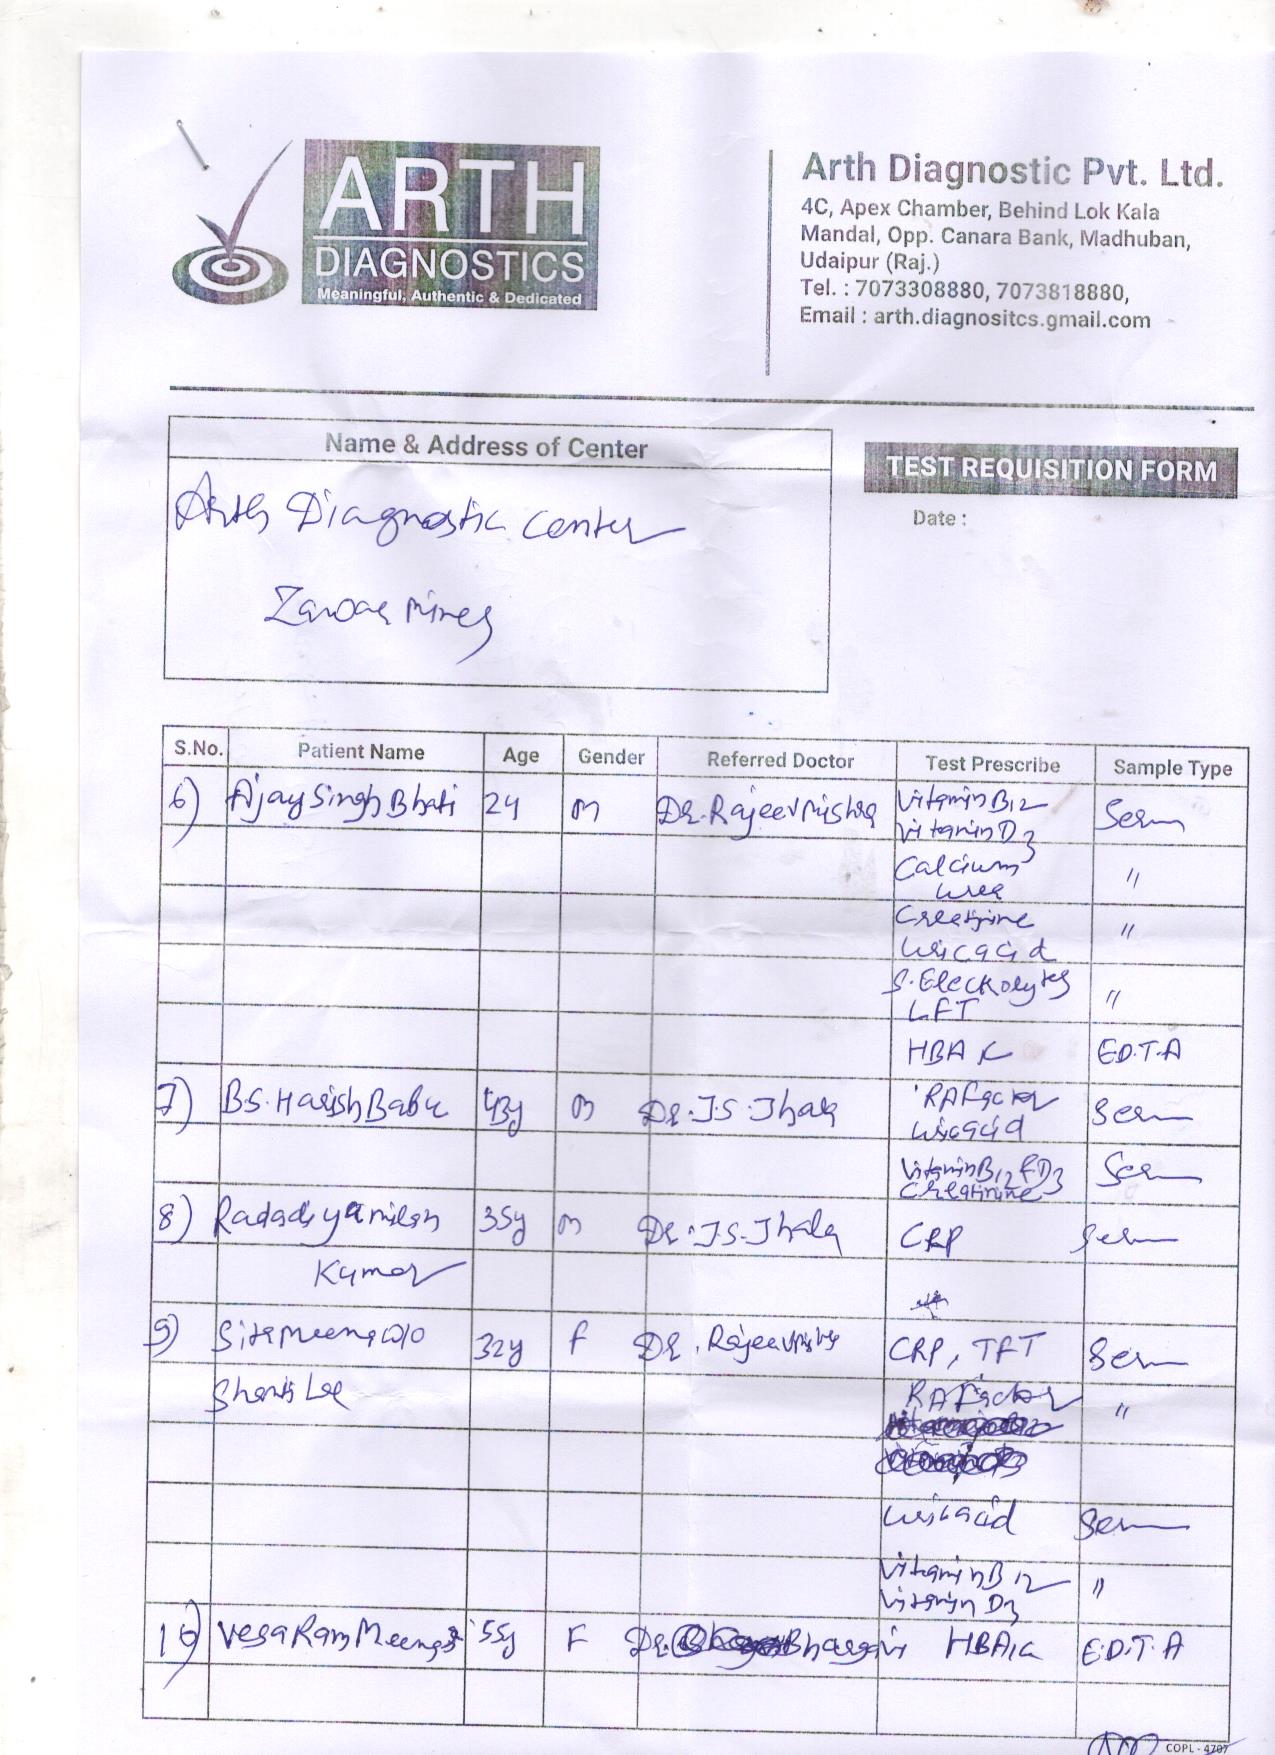 ARTH
DIAGNOSTICS
Meaningful, Authentic & Dedicated
Arth Diagnostic Pvt. Ltd.
4C, Apex Chamber, Behind Lok Kala
Mandal, Opp. Canara Bank, Madhuban,
Udaipur (Raj.)
Tel. : 7073308880, 7073818880,
Email : arth.diagnositcs.gmail.com
Name & Address of Center
Arth Diagnostic Center
Zawar Mines
TEST REQUISITION FORM
Date :
S.No. Patient Name Age Gender Referred Doctor Test Prescribe Sample Type
6) Ajay Singh Bhati 24 M Dr. Rajeev Mishra Vitamin B12 Serum
Vitamin D3
Calcium "
Urea
Creatinine "
Uric acid
S. Electrolytes "
LFT
HBA1c E.D.T.A
7) B.S. Harish Babu 43y M Dr. J.S. Jhala RA Factor Serum
Uric acid
Vitamin B12 & D3 Serum
Creatinine
8) Radadiya Milan 35y M Dr. J.S. Jhala CRP Serum
Kumar
9) Sita Meena W/O 32y F Dr. Rajeev Mishra CRP, TFT Serum
RA Factor "
Uric acid Serum
Vitamin B12 "
Vitamin D3
10) Ram Meena 55y F Dr. HBA1c E.D.T.A
COPL - 4707